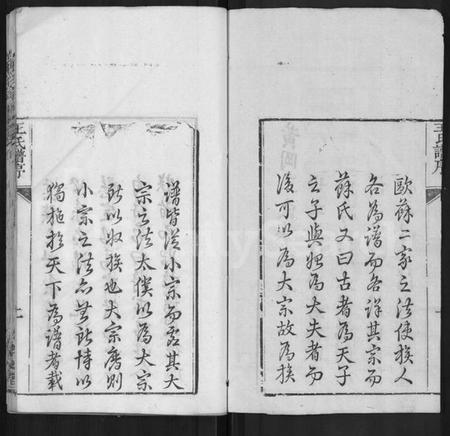 王氏譜序
歐蘇二家之法使族人
各為譜而各詳其宗而
蘇氏又曰古者為天子
之子與始為大夫者而
後可以為大宗故為族
譜皆從小宗而虛其大
宗之法太僕以為大宗
所以收族也大宗廢則
小宗之法亦無所恃以
獨施於天下為譜者載
王氏譜序